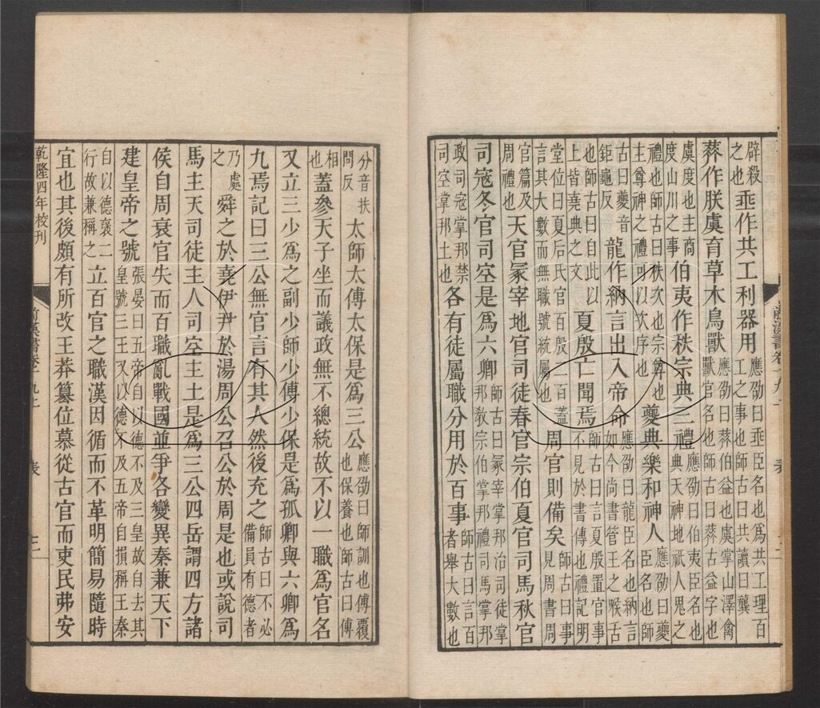 辟殺
之也
垂作共工利器用
應劭曰垂臣名也爲共工理百
工之事也師古曰共讀曰龔
𦯧作朕虞育草木鳥獸
應劭曰𦯧伯益也虞掌山澤禽
獸官名也師古曰𦯧古益字也
虞度也主商
度山川之事
伯夷作秩宗典三禮
應劭曰伯夷臣名也
典天神地祇人鬼之
禮也師古曰秩次也宗尊也
主尊神之禮可以次序也
夔典樂和神人
應劭曰夔
臣名也師
古曰夔音
鉅龜反
龍作納言出入帝命
應劭曰龍臣名也納言
如今尚書管王之喉舌
也師古曰自此以
上皆堯典之文
夏殷亡聞焉
師古曰言夏殷置官事
不見於書傳也禮記明
堂位曰夏后氏官百殷二百蓋
言其大數而無職號統屬也
周官則備矣
師古曰事
見周書周
官篇及
周禮也
天官冢宰地官司徒春官宗伯夏官司馬秋官
司寇冬官司空是爲六卿
師古曰冢宰掌邦治司徒掌
邦敎宗伯掌邦禮司馬掌邦
政司寇掌邦禁
司空掌邦土也
各有徒屬職分用於百事
師古曰言百
者舉大數也
分音扶
問反
太師太傅太保是爲三公
應劭曰師訓也傅覆
也保養也師古曰傅
相
也
蓋參天子坐而議政無不總統故不以一職爲官名
又立三少爲之副少師少傅少保是爲孤卿與六卿爲
九焉記曰三公無官言有其人然後充之
師古曰不必
備員有德者
乃處
之
舜之於堯伊尹於湯周公召公於周是也或說司
馬主天司徒主人司空主土是爲三公四岳謂四方諸
侯自周衰官失而百職亂戰國並爭各變異秦兼天下
建皇帝之號
張晏曰五帝自以德不及三皇故自去其
皇號三王又以德不及五帝自損稱王秦
自以德襃二
行故兼稱之
立百官之職漢因循而不革明簡易隨時
宜也其後頗有所改王莽簒位慕從古官而吏民弗安
乾隆四年校刊
前漢書卷十九上
表